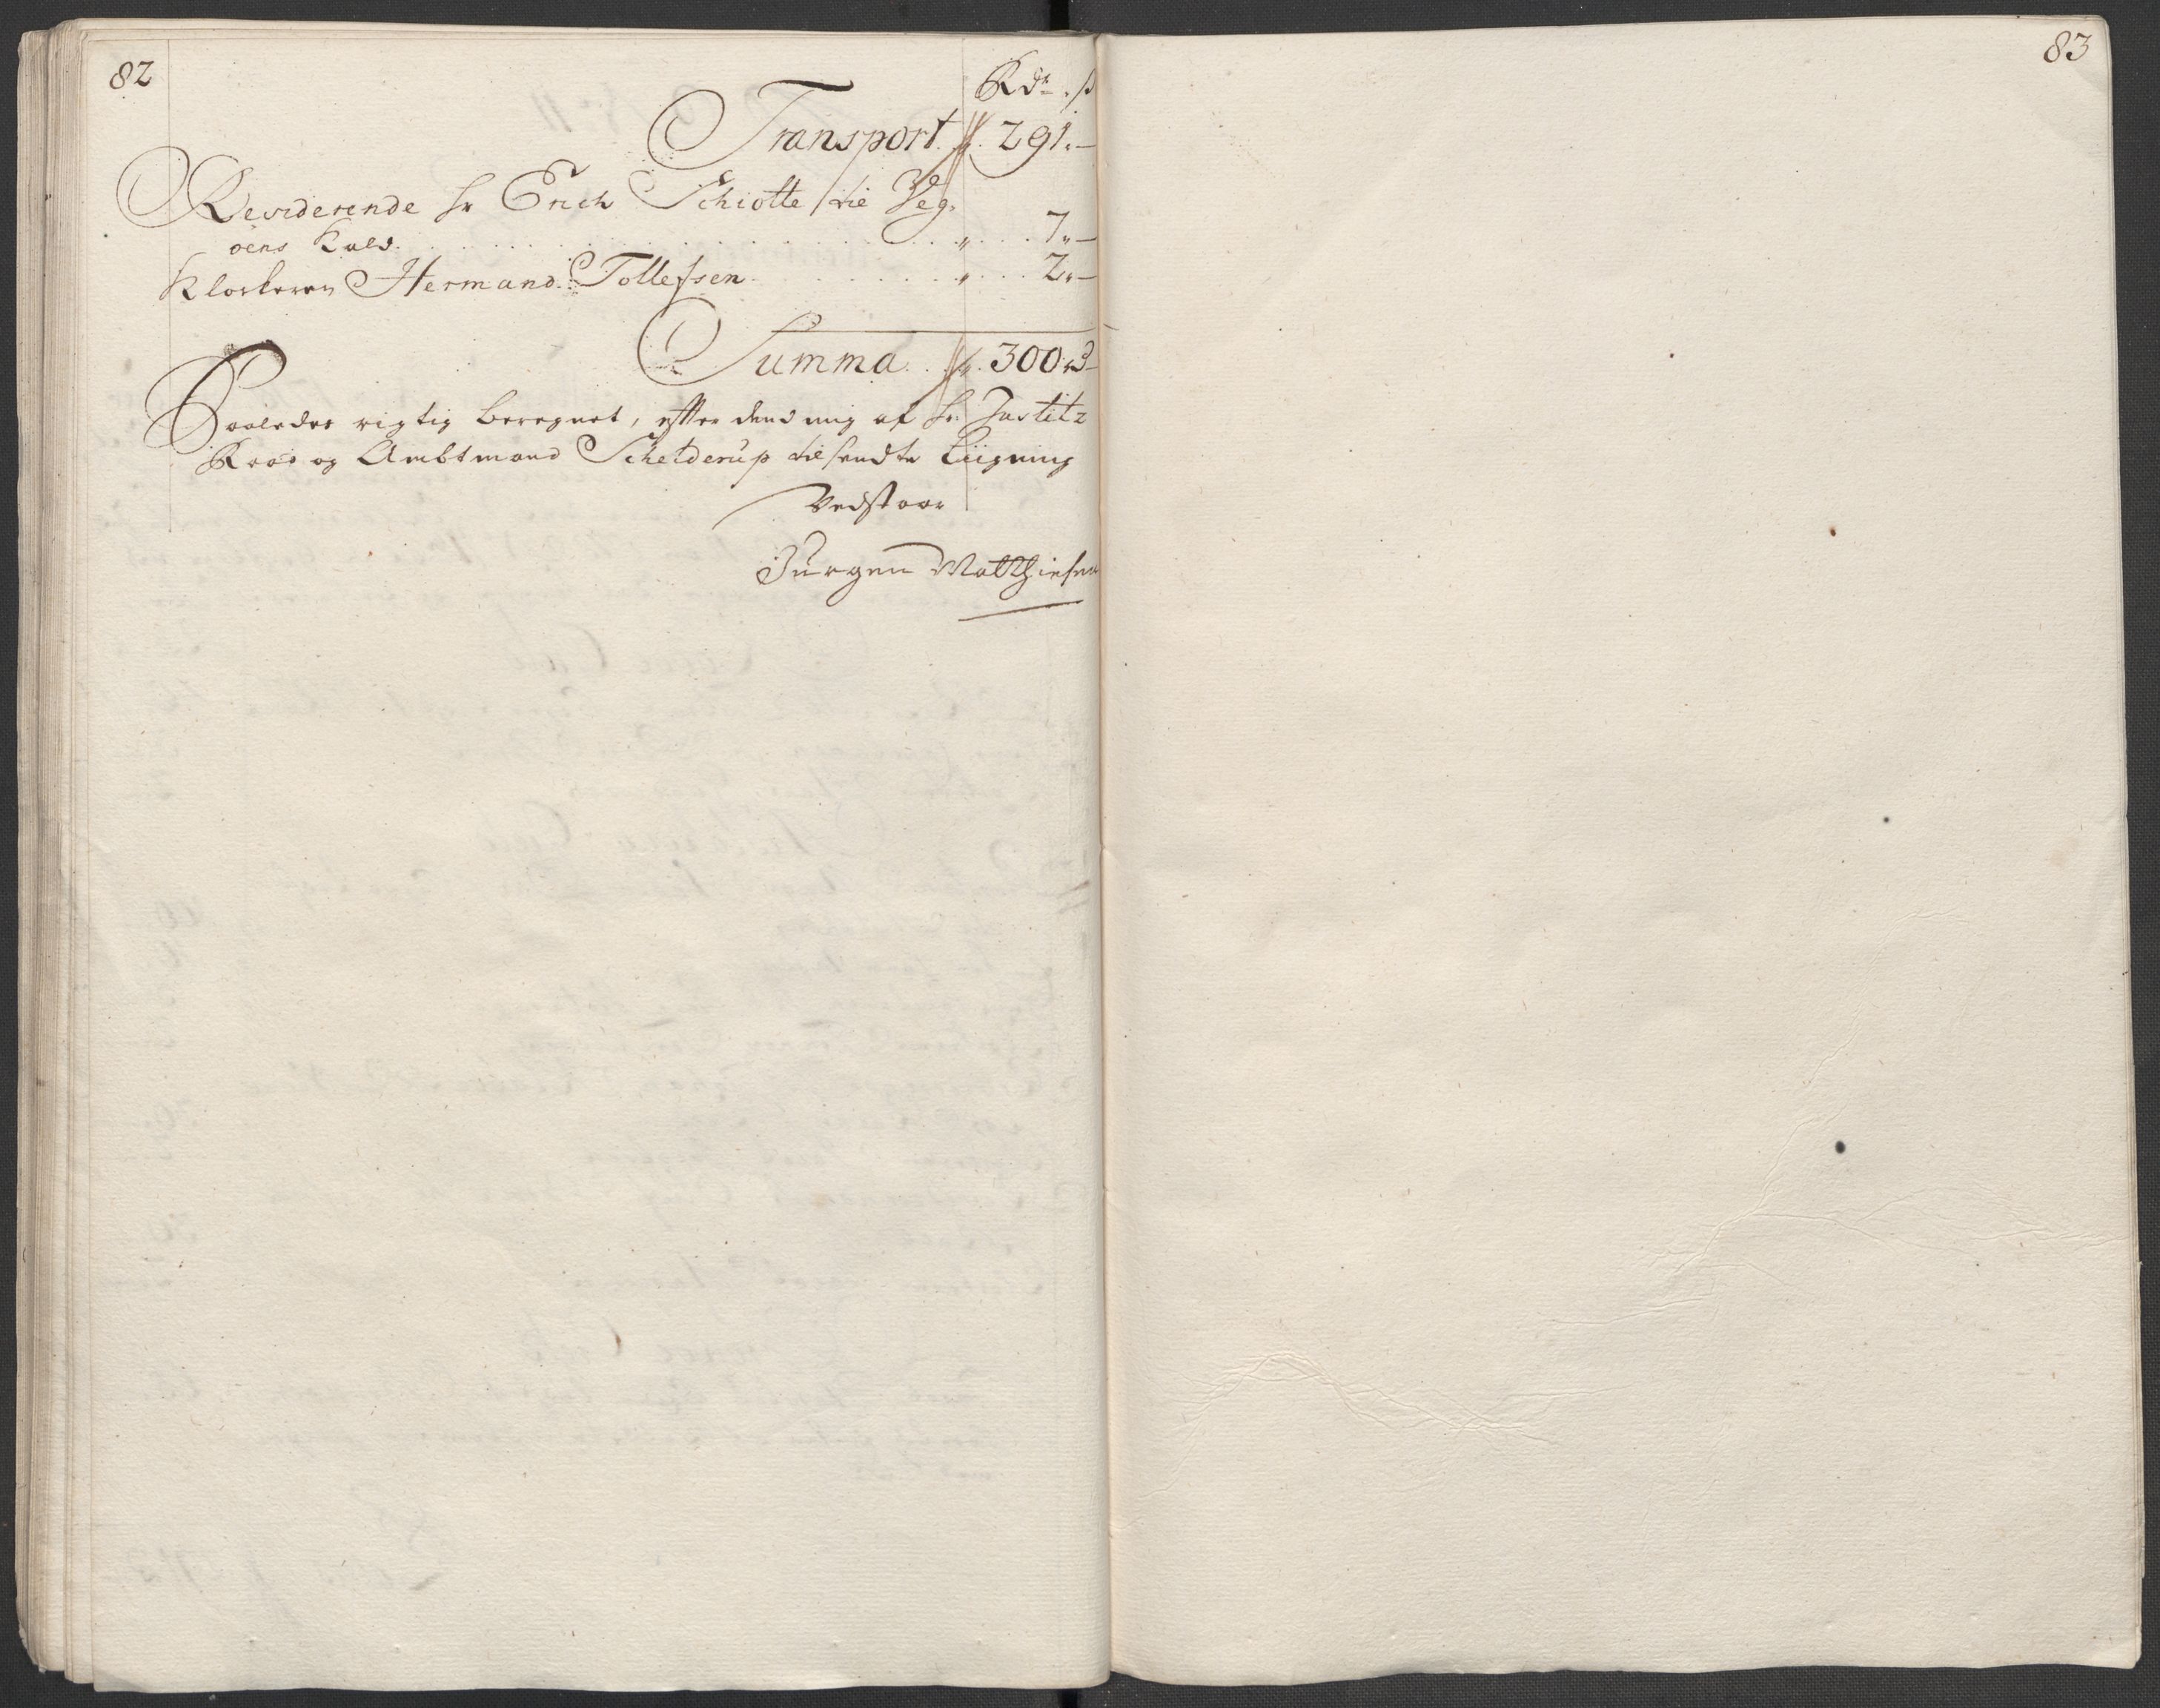 82
Rdr. ß
Transport // 291.—
Residerende hr Erich Schiøtte til Veg-
øens Kald . . . . . . . . . . . . . . . " . . . 7"—
Klockeren Hermand Tollefsen . . . . . . . " . . . 2"—
Summa . // . 300rd—
Saaledes rigtig beregnet, efter dend mig af hr Justitz
Raad og Ambtmand Schelderup tilsendte Liigning
Vedstaar
Jürgen Matthiesen
83